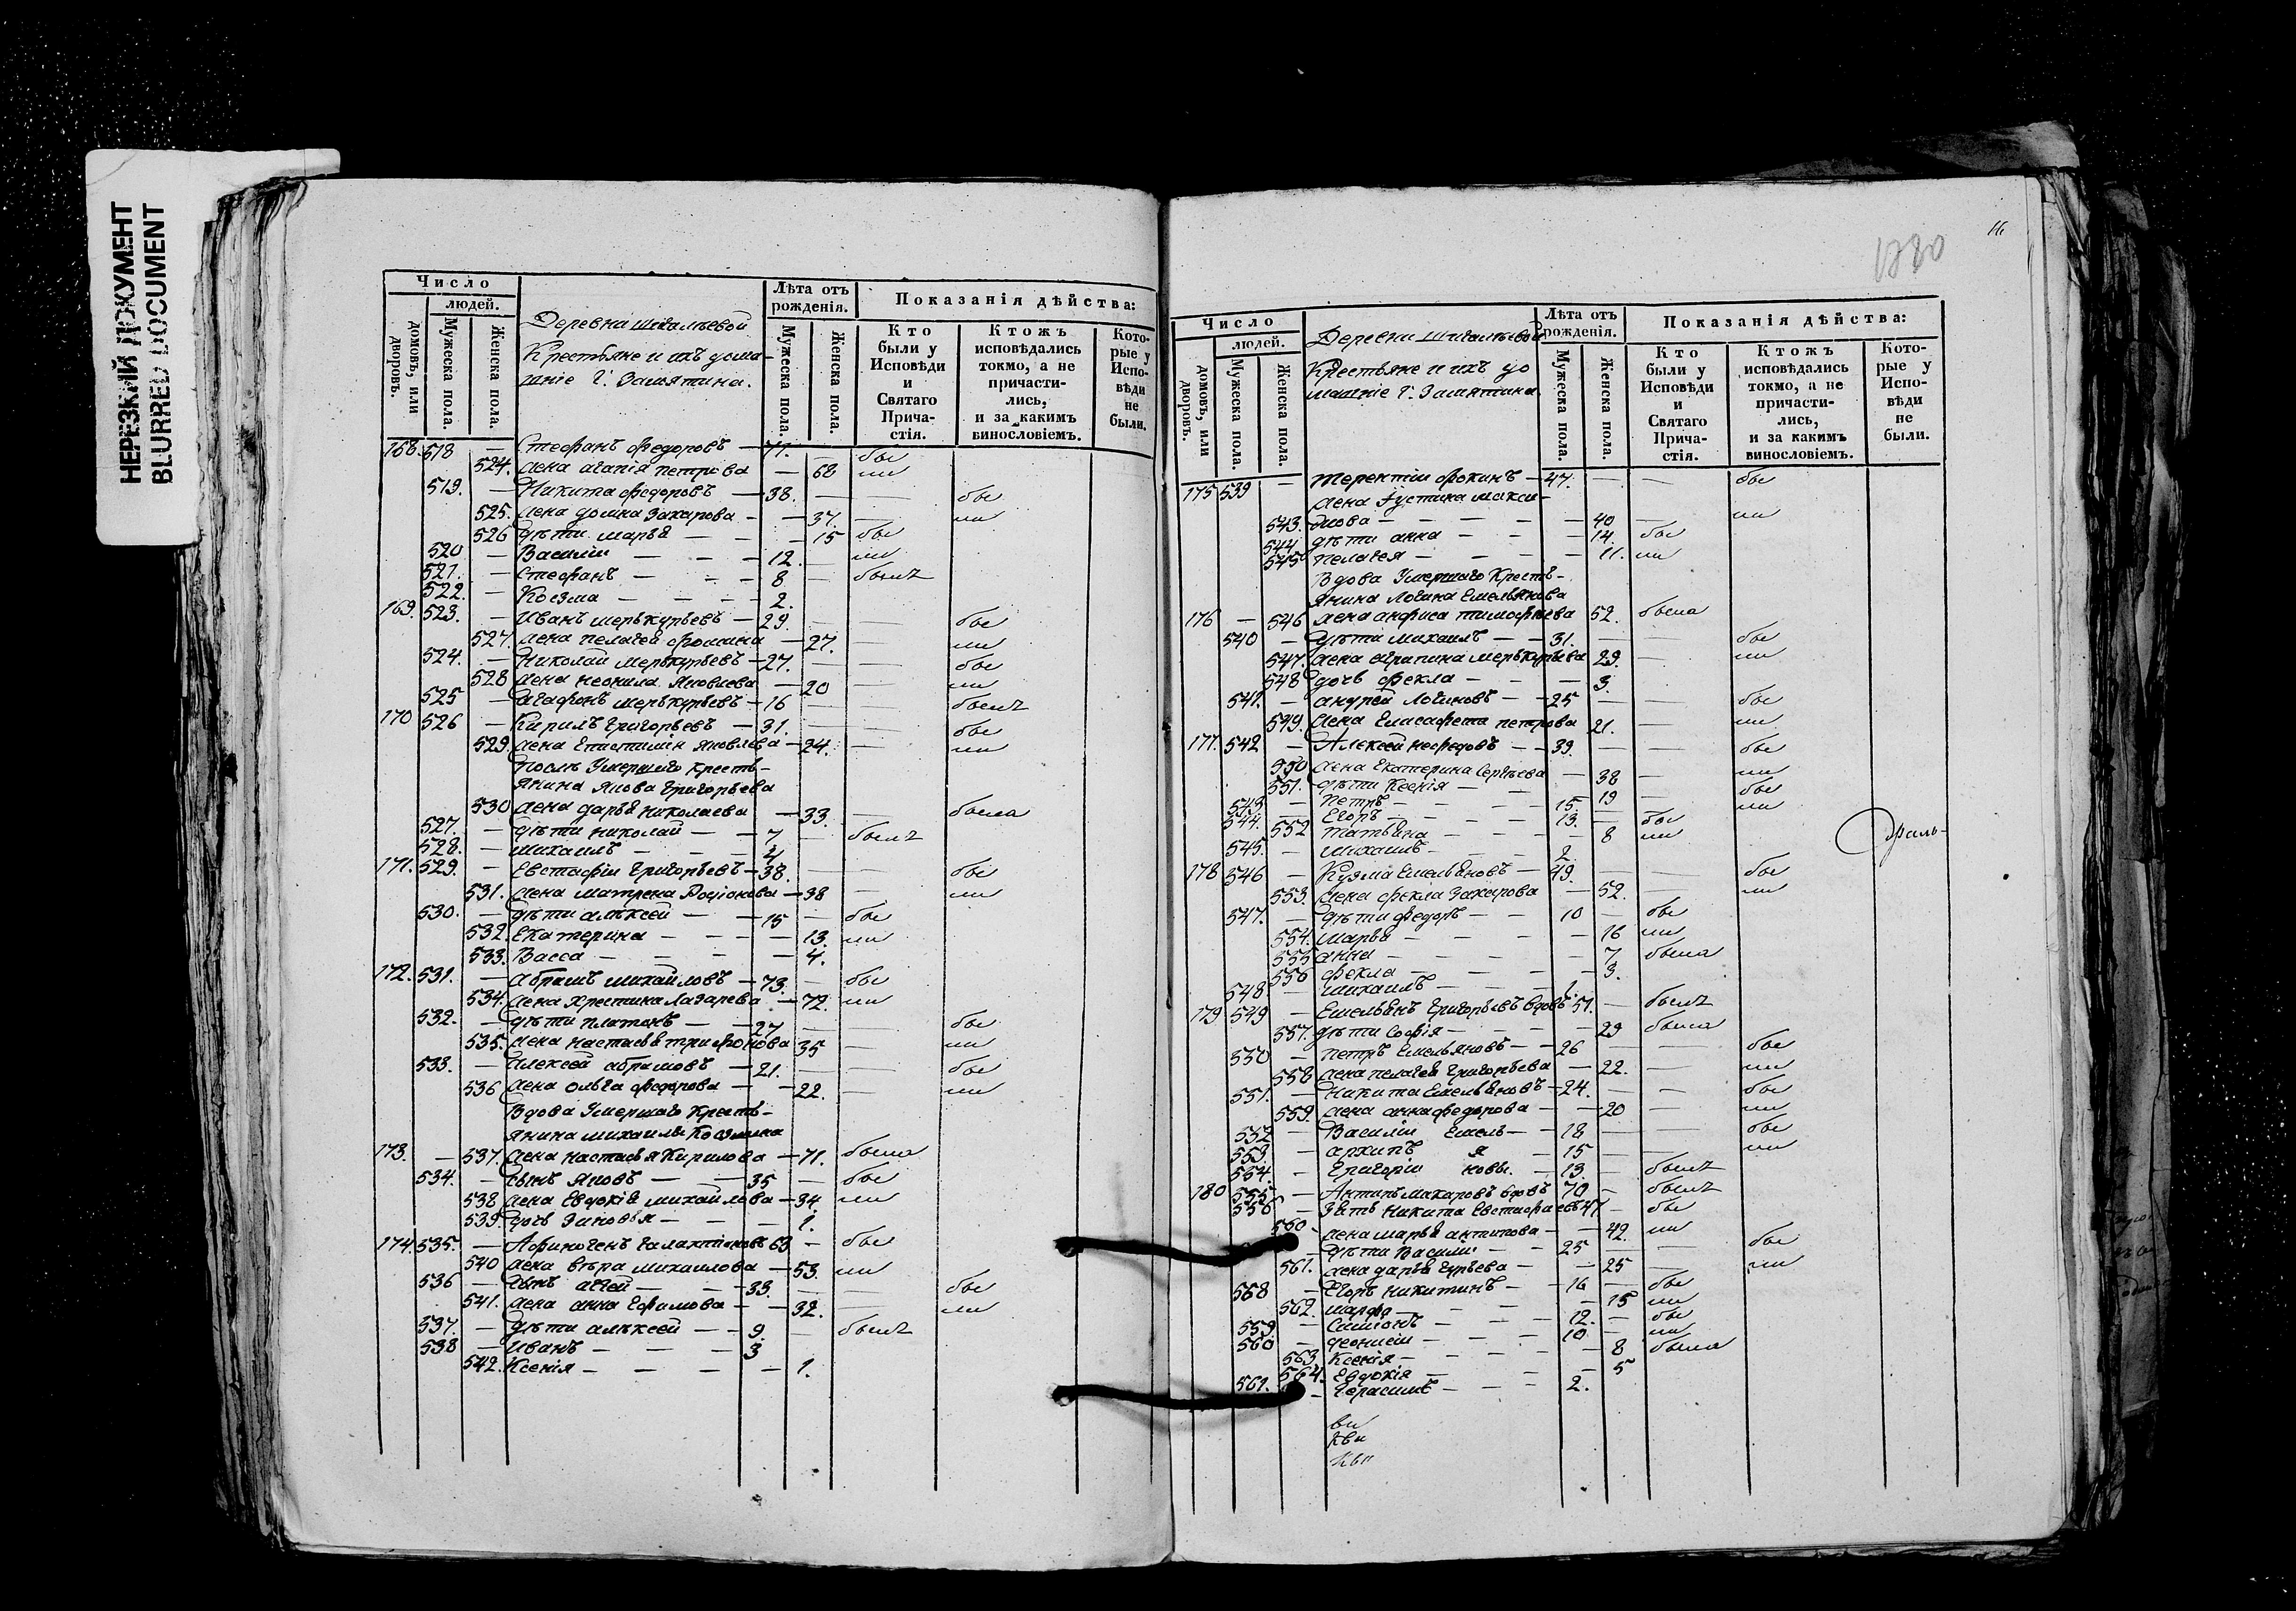 НЕРЕЗКИЙ ДОКУМЕНТ
BLURRED DOCUMENT
Число
людей.
домовъ, или дворовъ.
Мужеска пола.
Женска пола.
Крестьяне и ихъ дома-
шніе Г. Замятина.
Лѣта отъ рожденія.
Мужеска пола.
Женска пола.
Показанія дѣйства:
Кто были у Исповѣди и Святаго Прича-стія.
Ктожъ исповѣдались токмо, а не причасти-лись, и за какимъ винословіемъ.
Кото-рые у Испо-вѣди не были.
168. 518 — Стефанъ Федоровъ — 71. — бы
524. жена агапія петрова — 68 ли
519. — Никита Федоровъ — 38. — — бы
525. жена домна Захарова — — 37. — ли
526 дѣти марья — — — 15 бы
520 — Василій — — — 12. — ли
521. — Стефанъ — — — 8 — былъ
522. — Козма — — — 2.
169. 523. — Иванъ меркурьевъ — 29. — — бы
527. жена пелагея фомина — 27. — ли
524. — Николай меркурьевъ — 27. — — бы
528 жена неонила Яковлева — 20 — ли
525 — агафонъ меркурьевъ — 16 — — былъ
170 526 — Кирилъ Григорьевъ — 31. — — бы
529. жена Епистимія Яковлева — 24. — ли
послѣ Умершаго кресть-
янина Якова Григорьева
530 жена дарья николаева — 33. — была
527. — дѣти николай — — 7 — былъ
528. — михаилъ — — — 4
171. 529. — Евстафій Григорьевъ — 38. — — бы
531. жена матрена Родіонова — 38 — ли
530. — дѣти алексей — — 15 — бы
532. Екатерина — — — — 13. ли
533. Васса — — — — 4.
172. 531. — абрамъ михайловъ — 73. — бы
534. жена христина Лазарева — 72. ли
532. — дѣти платонъ — — 27 — — бы
535. жена настасья трифонова 35 — ли
533. — Алексей абрамовъ — 21. — — бы
536 жена ольга федорова — — 22. — ли
Вдова Умершаго кресть-
янина михаилы Козмина
173. — 537. жена настасья Кирилова — 71. была
534. — сынъ Яковъ — — 35 — бы
538 жена Евдокія михайлова — 34. ли
539. дочь Зиновья — — — 1.
174. 535. — Афиногенъ Галактіоновъ 53 — бы
540 жена вѣра михаилова — 53. ли
536 — сынъ — — 33. — — бы
541. жена анна Ефимова — — 32. — ли
537. — дѣти алексей — — 9. — былъ
538 — Иванъ — — — 3
542. Ксенія — — — — 1.
1220
16
Число
людей.
домовъ, или дворовъ.
Мужеска пола.
Женска пола.
Крестьяне и ихъ до
машніе Г. Замятина.
Лѣта отъ рожденія.
Мужеска пола.
Женска пола.
Показанія дѣйства:
Кто были у Исповѣди и Святаго Прича-стія.
Ктожъ исповѣдались токмо, а не причасти-лись, и за какимъ винословіемъ.
Кото-рые у Испо-вѣди не были.
175 539 — терентій фокинъ — 47. — — бы
жена Iустина макси-
543. мова — — — — 40 — ли
544 дѣти анна — — — 14. бы
545 пелагея — — — 11. ли
Вдова Умершаго Кресть-
янина Логина Емельянова
176 — 546 жена анфиса тимофеева 52. была
540 — дѣти михаилъ — — 31. — — бы
547. жена агрипина меркурьева 29. — ли
548 дочь фекла — — — 3.
541. — андрей Логиновъ — 25 — — бы
549. жена Елисафета петрова 21. — ли
177. 542 — Алексей нефедовъ — — 39. — — бы
550 жена Екатерина Сергѣева — 38 — ли
551. дѣти Ксенія — — — 19 — бы
543. — Петръ — — — 15. — — ли
544. — Егоръ — — — 13. — бы
552 татьяна — — — — 8 ли
545. — михаилъ — — — 2.
178 546 — Кузма Емельяновъ — 49. — — бы
553. жена фекла Захарова — 52. — ли
547. — дѣти федоръ — — 10 — бы
554. марья — — — — 16 ли
555 анна — — — — 7 была
556 фекла — — — — 3.
548. — михаилъ — — — 1.
179 549 — Емельянъ Григорьевъ вдовъ 51. — былъ
557. дѣти Софія — — — 29 была
550 — петръ Емельяновъ — — 26 — — бы
558 жена пелагея григорьева — 22. — ли
551. — никита Емельяновъ — 24. — — бы
559. жена анна федорова — — 20 — ли
552 — Василій Емель — 18 — — бы
553 — архипъ я — 15 — — ли
554. — Григорій новы. — 13 — былъ
180 555 — Антипъ макаровъ вдовъ 70 — былъ
556 — Зять Никита Евстафіевъ 47 — бы
560 жена марья антипова — — 42. ли
— дѣти Василій — — 25 — — бы
561. жена дарья Гурьева — — 25 — ли
558 — Егоръ никитинъ — — 16 — бы
562. марфа — — — — 15 ли
559 — Симіонъ — — — 12. — бы
560 — деонисій — — — 10 — ли
563. Ксенія — — — — 8 была
564. Евдокія — — — 5
561. — Герасимъ — — — 2.